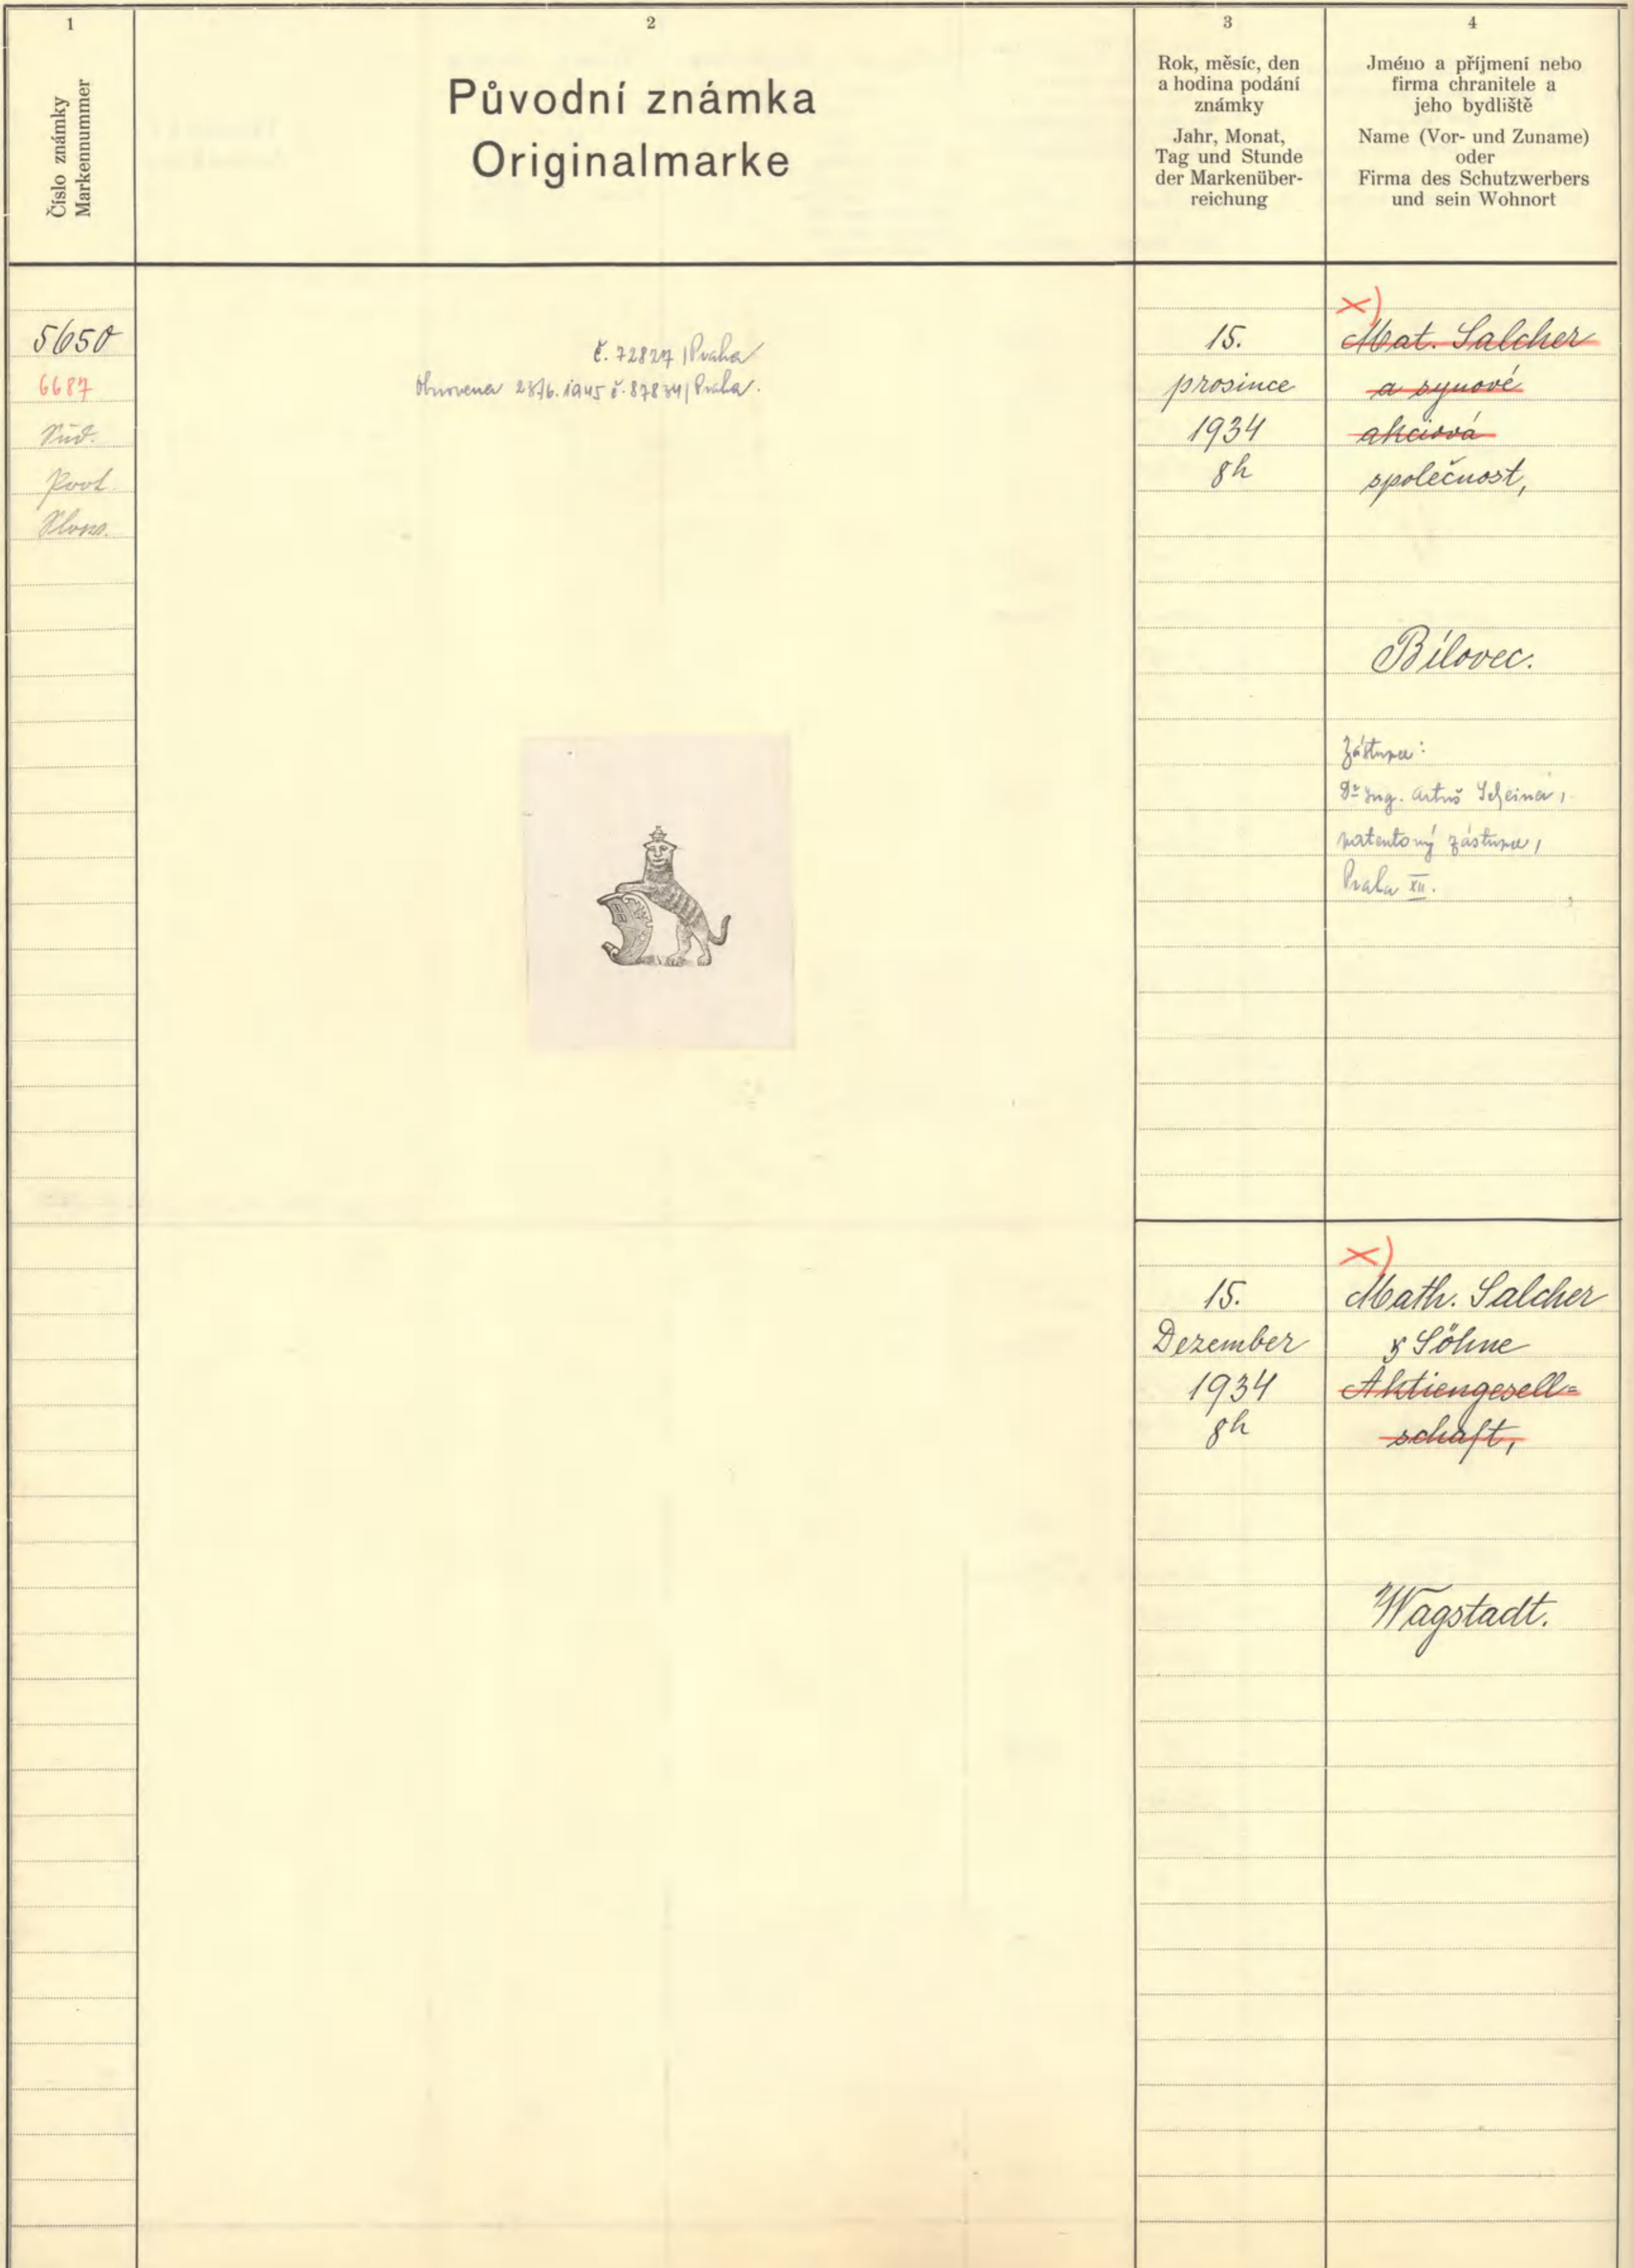 1
Číslo známky
Markennummer
2
Původní známka
Originalmarke
3
Rok, měsíc, den
a hodina podání
známky
Jahr, Monat,
Tag und Stunde
der Markenüber-
reichung
4
Jméno a příjmení nebo
firma chranitele a
jeho bydliště
Name (Vor- und Zuname)
oder
Firma des Schutzwerbers
und sein Wohnort
5650
6687
Süd.
Prot.
Slow.
č. 72827/Praha
Obnovena 28/6. 1945 č. 87834/Praha.
15.
prosince
1934
8h
x)
Mat. Salcher
a synové
akciová
společnost,
Bílovec.
Zástupce:
Dr Ing. Artuš Scheiner,
patentový zástupce,
Praha XII.
15.
Dezember
1934
8h
x)
Math. Salcher
& Söhne
Aktiengesell=
schaft,
Wagstadt.